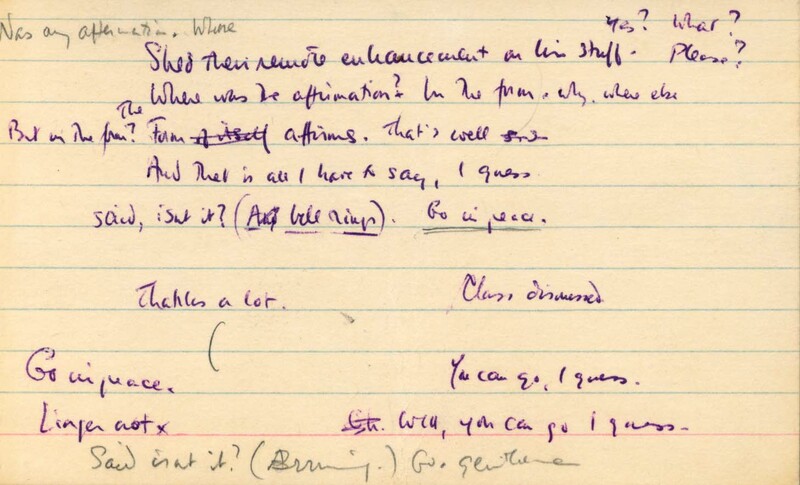 Was any affirmation. Where
Yes? What?
Shed their remote enhancement on his stuff. Please?
Where was the affirmation? In the form. why. where else
But in the form? The Form of itself affirms. That's well
And that is all I have to say, I guess
said, isn't it? (A bell rings). Go in peace.
Thanks a lot. Class dismissed
Go in peace. You can go, I guess.
Linger not Well, you can go I guess.
Said isn't it? ( ) Go. gentlemen